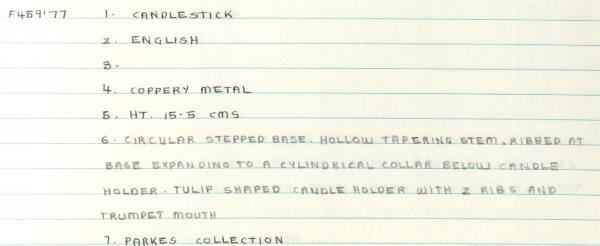 F459'77 1. CANDLESTICK
2. ENGLISH
3.
4. COPPERY METAL
5. HT. 15.5 CMS
6. CIRCULAR STEPPED BASE. HOLLOW TAPERING STEM, RIBBED AT
BASE EXPANDING TO A CYLINDRICAL COLLAR BELOW CANDLE
HOLDER. TULIP SHAPED CANDLE HOLDER WITH 2 RIBS AND
TRUMPET MOUTH
7. PARKES COLLECTION